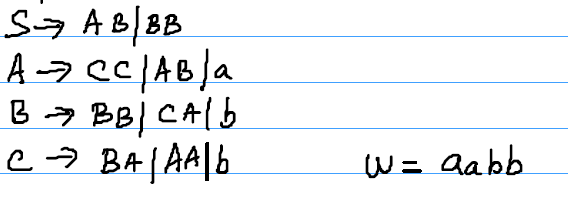 S → AB|BB
A → CC|AB|a
B → BB|CA|b
C → BA|AA|b w = aabb